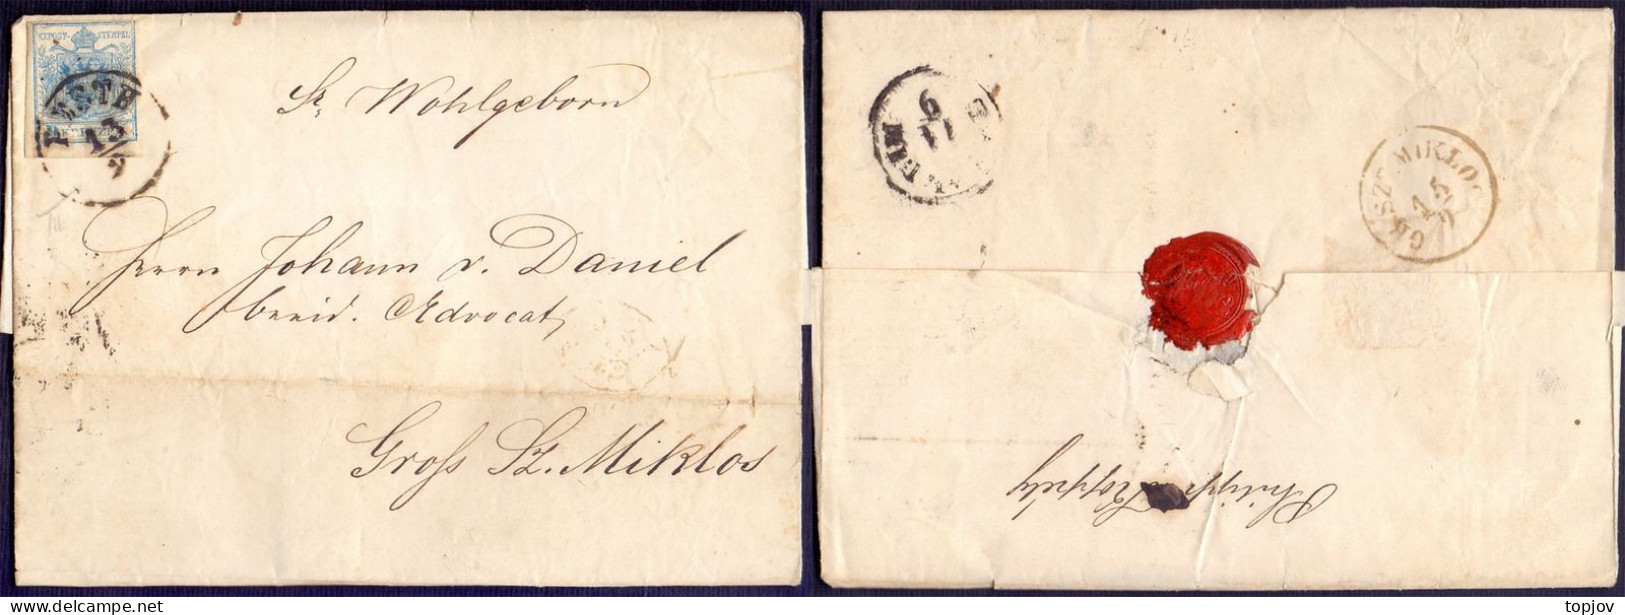 KKPOST-STEMPEL
PESTH
13/9
Sr Wohlgeborn
Herrn Johann v. Daniel
beeid. Advocat
Groß Sz. Miklos
GR. SZT. MIKLOS
15/9
Philipp
topjov
delcampe.net